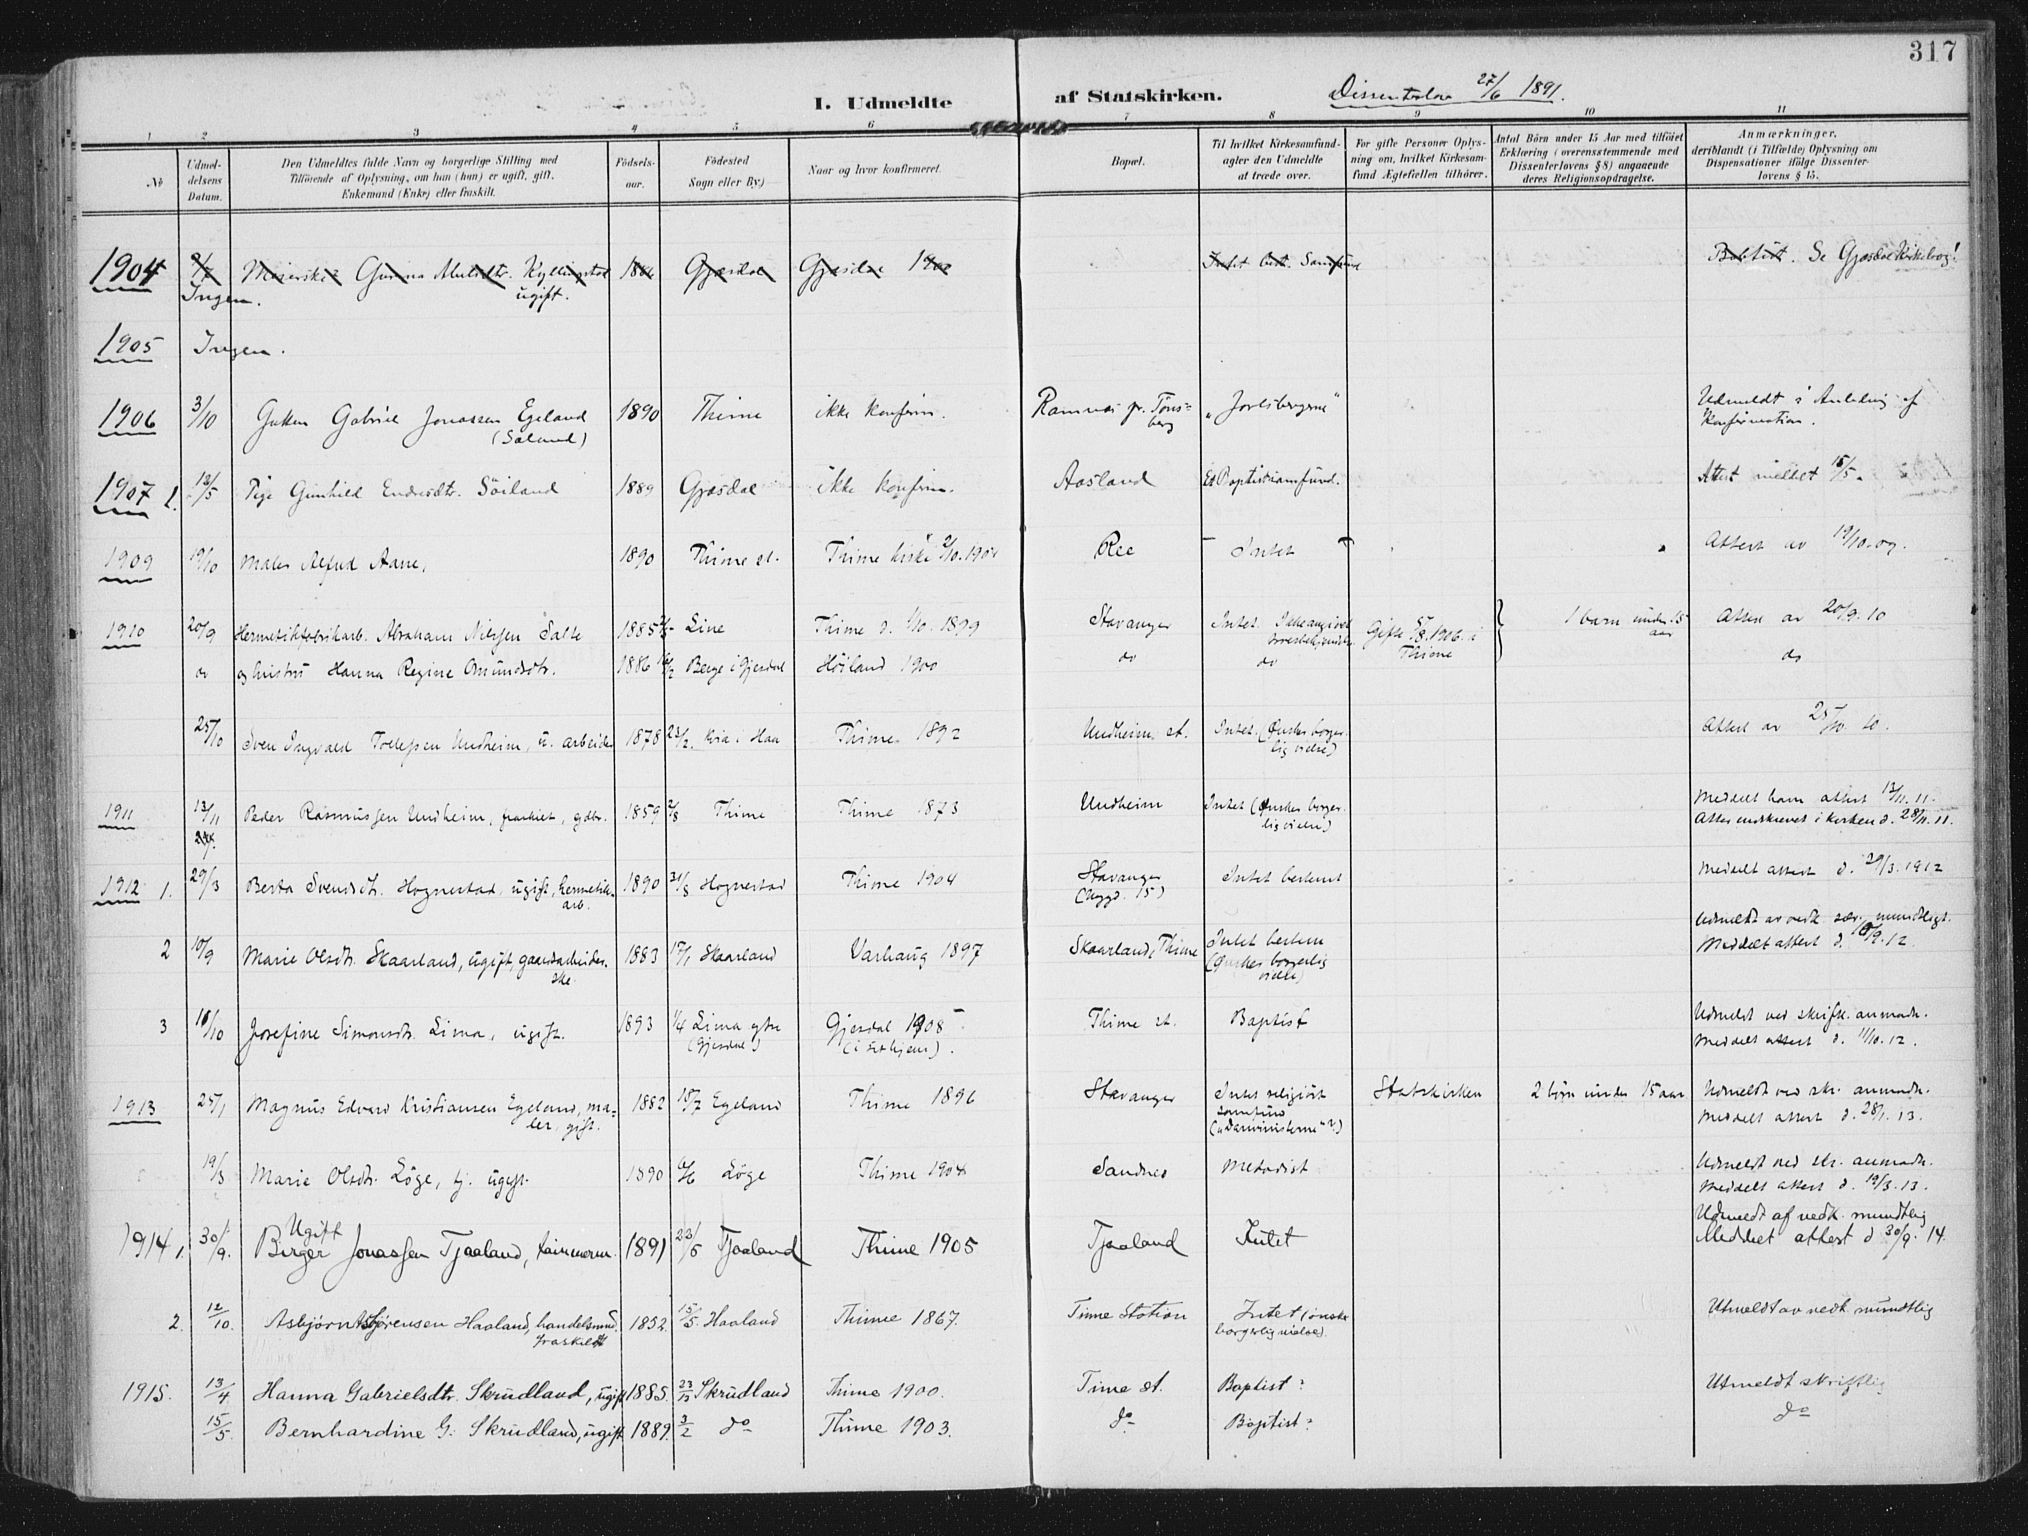 317
I. Udmeldte af Statskirken. Dissenterlov 27/6 1891.
1 2 3 4 5 6 7 8 9 10 11
No
Udmeldelsens Datum.
Den Udmeldtes fulde Navn og borgerlige Stilling med
Tilföiende af Oplysning, om han (hun) er ugift, gift,
Enkemand (Enke) eller fraskilt.
Födselsaar.
Födested
Sogn eller By.)
Naar og hvor konfirmeret.
Bopæl.
Til hvilket Kirkesamfund
agter den Udmeldte
at træde over.
For gifte Personer Oplysning om, hvilket Kirkesamfund Ægtefællen tilhörer.
Antal Börn under 15 Aar med tilföiet
Erklæring (overensstemmende med
Dissenterlovens § 8) angaaende
deres Religionsopdragelse.
Anmærkninger,
deriblandt (i Tilfælde) Oplysning om
Dispensationer ifölge Dissenterlovens § 15.
1904 Meierske Gurina Kyllingstad ugift. Gjæsdal Gjæsdal 1900 Intet best. Samfund Se Gjæsdal Kirkebog!
Ingen.
1905 Ingen.
1906 3/10 Gutten Gabriel Jonassen Egeland 1890 Thime ikke konfirm. Ramnæs pr. Tönsberg "Jarlsbergerne" Udmeldt i Anledning af
Konfirmation.
1907 1. 13/5 Pige Gunhild Endresdtr. Söiland 1889 Gjæsdal ikke konfirm. Aasland Et Baptistsamfund. Attest meldet 15/5.
1909 19/10 Maler Alfred Aane, 1890 Thime st. Thime kirke 2/10.1904 Ree Intet Attest av 19/10.09.
1910 20/9 Hermetikfabrikarb. Abraham Nilssen Salte 1885 Line Thime d. 1/10 1899 Stavanger Intet. Gifte 1906 i Thime 1 barn under 15 aar Attest av 20/9.10
do og hustru Hanna Regine Omundsdtr. 1886 Berge i Gjesdal Höiland 1900 do do do
25/10 Sven Ingvald Tollefsen Undheim, u. arbeider 1878 23/2 Kvia i Haa Thime 1892 Undheim st. Intet. (Önsker borgerlig vielse) Attest av 25/10.10.
1911 13/11 Peder Rasmussen Undheim, fraskilt, gdbr. 1859 2/8 Thime Thime 1873 Undheim Intet (Önsker borgerlig vielse) Meddelt ham attest 13/11.11.
28/11.11.
1912 1. 29/3 Berta Svendsdtr. Hognestad, ugift, hermetikarb. 1890 31/8 Hognestad Thime 1904 Stavanger Intet bestemt Meddelt attest d. 29/3.1912
2 10/9 Marie Olsdtr. Skaarland, ugift, gaardsarbeiderske 1883 17/1 Skaarland Varhaug 1897 Skaarland, Thime Intet bestem (Önsker borgerlig vielse) Udmeldt av vedk. mundtligt.
Meddelt attest d. 10/9.12.
3 11/10 Josefine Simonsdtr. Lima, ugift. 1893 1/4 Lima ytre (Gjesdal) Gjesdal 1908 Thime st. Baptist Udmeldt ved skriftl. anmodn.
Meddelt attest d. 11/10.12.
1913 25/1 Magnus Edvard Kristiansen Egeland, maler, gift. 1882 15/7 Egeland Thime 1896 Stavanger Intet religiöst samfund ("Darwinisterne"?) Statskirken 2 börn under 15 aar Udmeldt ved skr. anmodn.
Meddelt attest d. 28/1.13.
19/3 Marie Olsdtr. Löge, tj. ugift. 1890 6/6 Löge Thime 1904 Sandnes Metodist Udmeldt ved skr. anmodn.
Meddelt attest d. 19/3.13.
1914 1. 30/9. Ugift Birger Jonassen Tjaaland, tömmerm. 1891 23/5 Tjaaland Thime 1905 Tjaaland Intet Udmeldt af vedk. mundtlig
Meddelt attest d 30/9.14.
2. 12/10. Asbjørn Asbjørensen Haaland, handelsmd. fraskildt 1852. 15/5 Haaland Thime 1867. Time Station Intet (ønsker borgerlig vielse). Utmeldt av vedk. mundtlig
1915. 13/4 Hanna Gabrielsdtr. Skrudland, ugift 1885. Skrudland Thime 1900. Time st. Baptist? Utmeldt skriftlig
15/5. Bernhardine G. Skrudland, ugift 1889. 3/2 do Thime 1903. do Baptist? do